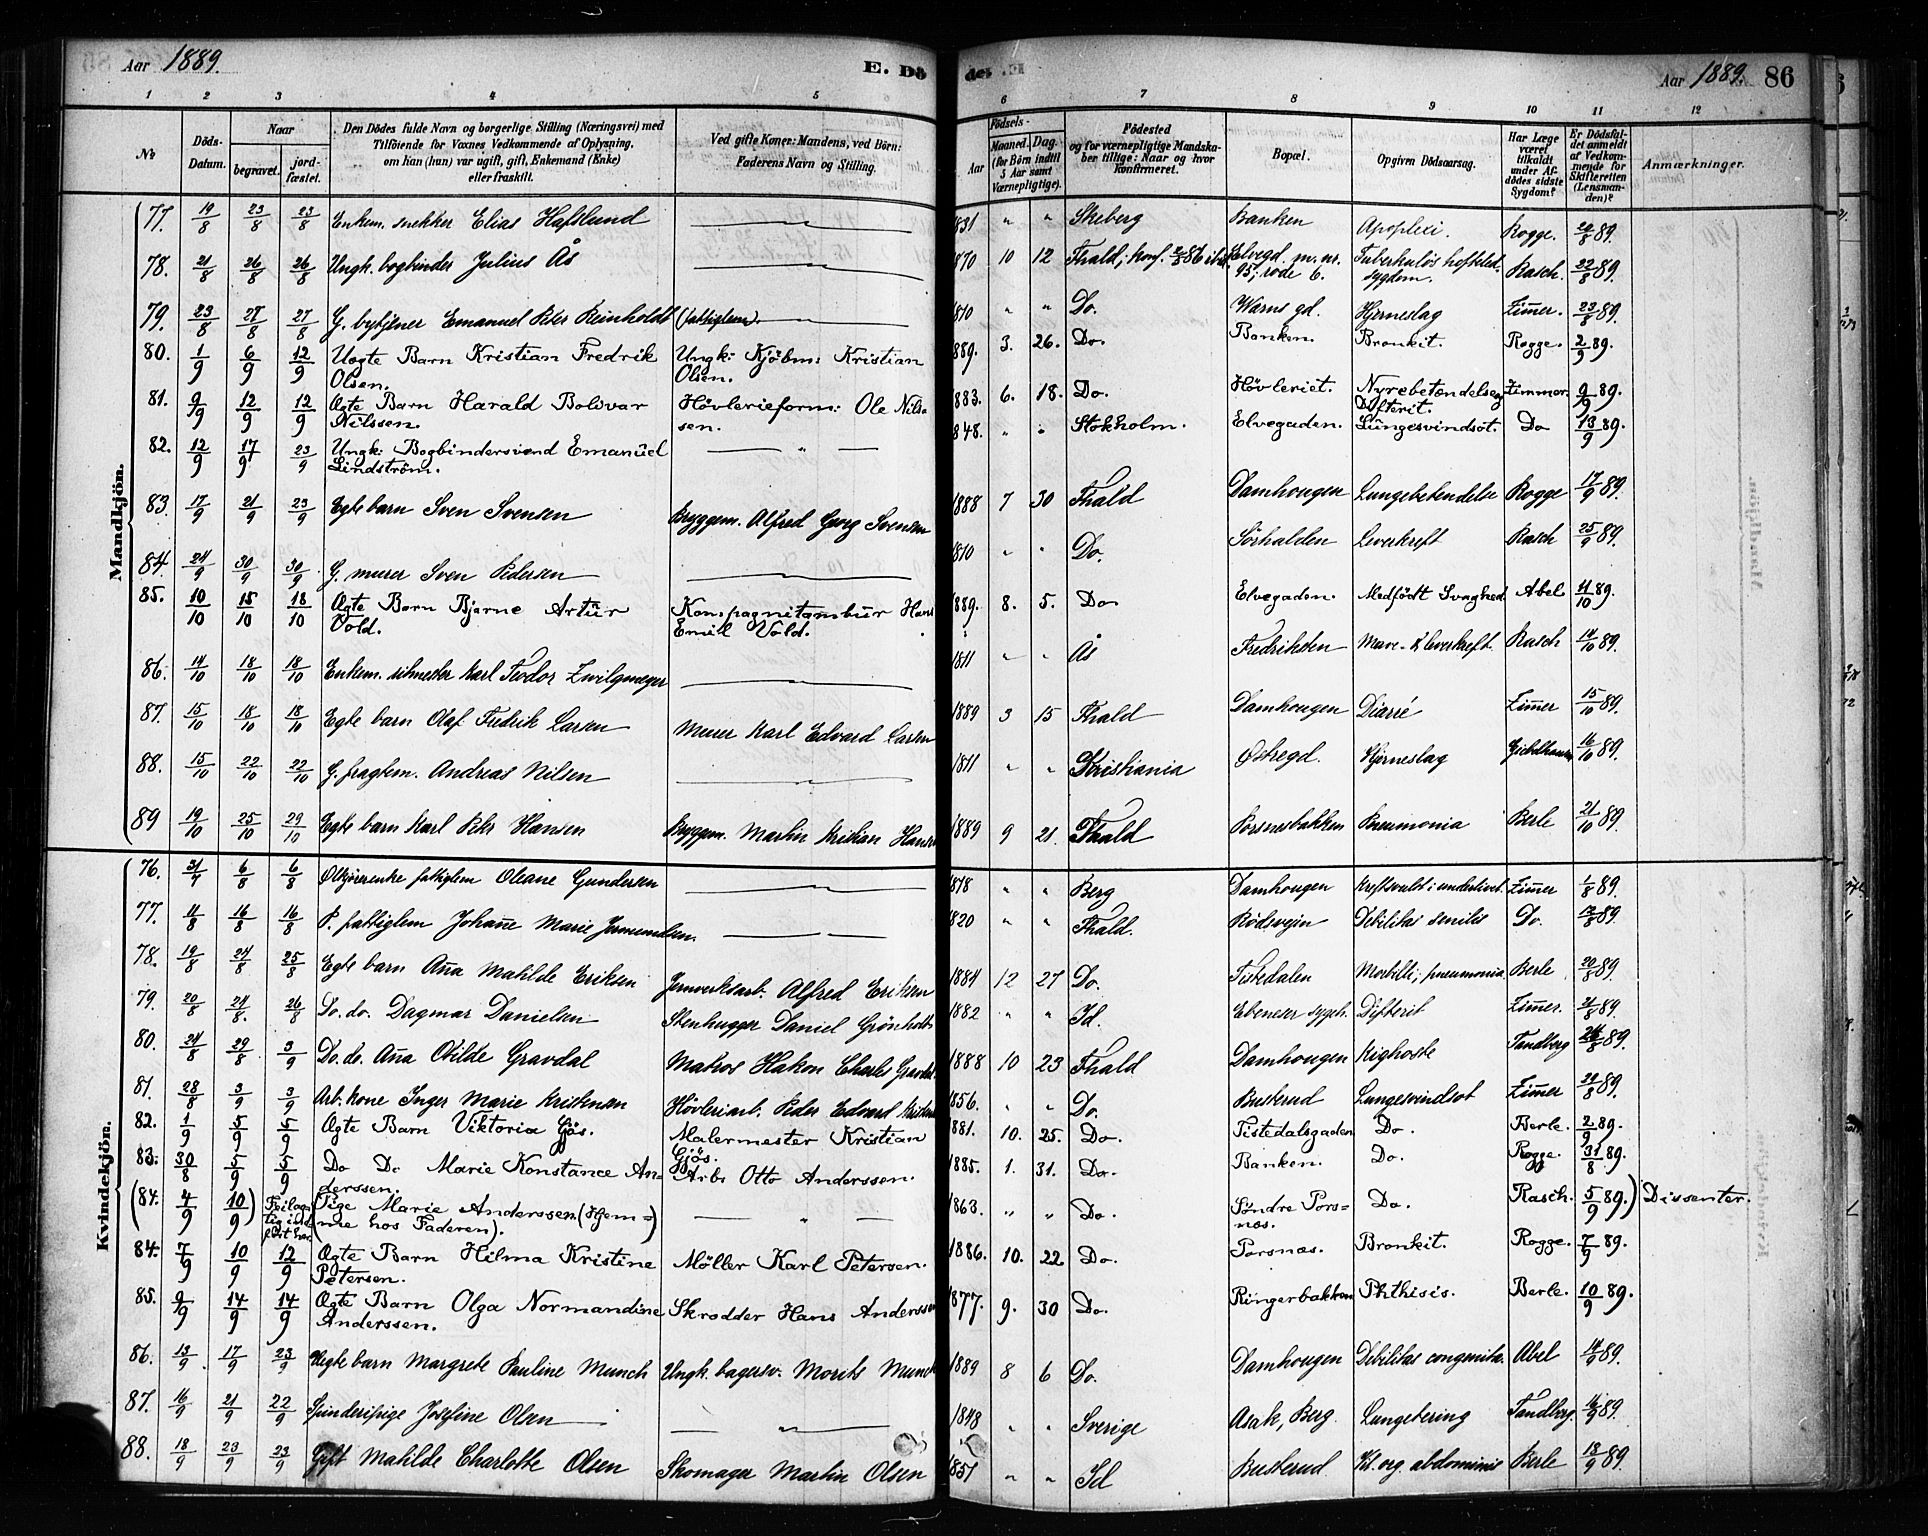 Aar 1889. E. Dö
de. Aar 1889. 86
1 2 3 4 5 6 7 8 9 10 11 12
No Döds-Datum. Naar begravet. jord-fæstet. Den Dödes fulde Navn og borgerlige Stilling (Næringsvei) med Tilföiende for Voxnes Vedkommende af Oplysning, om han (hun) var ugift, gift, Enkemand (Enke) eller fraskilt. Ved gifte Koner: Mandens, ved Börn: Faderens Navn og Stilling. Födsels- Aar Maaned. Dag. (for Börn indtil 5 Aar samt Værnepligtige). Födested og for værnepligtige Mandskaber tillige: Naar og hvor Konfirmeret. Bopæl. Opgiven Dödsaarsag. Har Læge været tilkaldt under Afdödes sidste Sygdom? Er Dödsfaldet anmeldt af Vedkommende for Skifteretten (Lensmanden)? Anmærkninger.
Mandkjön.
77. 19/8 23/8 23/8 Enkem. snekker Elias Hafslund 1831 " " Skeberg Banken Apoplexi. Rogge. 20/8 89.
78. 21/8 26/8 26/8 Ungk. bogbinder Julius Ås 1870 10 12 Fhald, konf. Elvegd. m. nr. 95, rode 6. Tuberkuløs hofteledsygdom. Rasch. 22/8 89.
79. 23/8 28/8 27/8 G. bytjener Emanuel Peter Reinholdt (fattiglem). 1810 " " Do. Warns gd. Hjerneslag Zimer. 23/8 89.
80. 1/9 6/9 12/9 Uægte Barn Kristian Fredrik Olsen. Ungk: Kjöbm: Kristian Olsen. 889. 3. 26. Do. Banken. Bronkit. Rogge. 2/9 89.
81. 9/9 12/9 12/9 Ægte Barn Harald Bolivar Nilssen. Hövlerieform: Ole Nilssen. 883. 6. 18. Do. Hövleriet. Nyrebetændelse og Difterit. Zimmer. 9/9 89.
82. 12/9 17/9 23/9 Ungk: Bogbindersvend Emanuel Lindström. 848. " " Stokholm. Elvegaden. Lungesvindsot. Do 13/9 89.
83. 17/9 21/9 23/9 Egte barn Sven Svensen Bryggem. Alfred Georg Svensen 1888 7 30 Fhald Damhougen Lungebetendelse Rogge 17/9 89.
84. 24/9 30/9 30/9 G. murer Sven Pedersen 1810 " " Do. Sørhalden Leverkreft Rasch 25/9 89.
85. 10/10 15/10 18/10 Ægte Barn Bjarne Artur Vold. Kompagnitambur Hans Emil Vold. 1889. 8. 5. Do. Elvegaden. Medfödt Svaghed. Abel 11/10 89.
86. 14/10 18/10 18/10 Enkem. Karl Teodor Zwilgmeyer 1811 " " Ås Fredriksten Mave- & leverkreft. Rasch 14/10 89.
87. 15/10 18/10 18/10 Egte barn Olaf Fredrik Larsen Murer Karl Edvard Larsen 1889 3 15 Fhald Damhougen Diarré Zimer 15/10 89.
88. 15/10 22/10 22/10 G. fragtem. Andreas Nilsen 1811 " " Kristiania Østregd. Hjerneslag 16/10 89.
89 19/10 25/10 29/10 Egte barn Karl Peter Hansen Bryggem. Martin Kristian Hansen 1889 9 21. Fhald Porsnesbakken Pneumonia Berle 21/10 89.
Kvindekjön.
76. 31/7 6/8 6/8 Ølkjørerenke fattiglem Oleane Gundersen 1818 " " Berg Damhougen Kreftsvulst i underlivet. Zimer 1/8 89.
77. 11/8 16/8 16/8 P. fattiglem Johanne Marie Jermundsen. 1820 " " Fhald. Rødsvejen Debilitas senilis Do. 12/8 89.
78. 19/8 24/8 25/8 Egte barn Ana Matilde Eriksen Jernverksarb. Alfred Eriksen 1884 12 27 Do. Tistedalen Morbilli; pneumonia Berle 20/8 89
79. 20/8 24/8. 26/8 Do. do. Dagmar Danielsen Stenhugger Daniel Grönholt 1882 " " Id. Ebeneser sygeh. Difterit Zimer. 21/8 89.
80. 24/8 29/8 3/9 Do. do. Ana Otilde Gravdal Matros Hakon Charles Gravdal 1888 10 23 Fhald Damhougen Kighoste Tandberg 24/8 89.
81. 28/8 3/9 3/9 Arb. kone Inger Marie Kristensen Hövleriarb. Peder Edvard 1856. " " Do. Busterud Lungesvindsot Zimer 28/8 89.
82. 1/9 5/9 5/9 Ægte Barn Viktoria Gjös. Malermester Kristian Gjös. 881. 10. 25. Do. Tistedalsgaden Do. Berle. 2/9 89.
83. 30/8 5/9 5/9 Do Do Marie Konstance Anderssen. Arb. Otto Anderssen. 1885. 1. 31. Do. Banken. Do. Rogge. 31/8 89.
(84. 4/9 10/9) Feilagtig indført her. Pige Marie Anderssen (Hjemme hos Faderen). 1863. " " Do. Söndre Porsnæs. Do. Rasch. 5/9 89.) Dissenter.
84. 7/9 10/9 12/9 Ægte Barn Hilma Kristine Petersen. Möller Karl Petersen. 1886. 10. 22. Do. Porsnæs. Bronkit. Rogge. 7/9 89.
85. 9/9 14/9 14/9 Ægte Barn Olga Normandine Anderssen. Skrædder Hans Anderssen 1877. 9. 30 Do. Ringerbakken Phthisis. Berle. 10/9 89.
86. 13/9 17/9 23/9 Uegte barn Margrete Pauline Munch Ungk. bagersv. Morits Munch 1889 8 6 Do. Damhougen Debilitas congenita. Abel 14/9 89.
87. 16/9 21/9 22/9 Spinderipige Josefine Olsen 1848 " " Sverige Asak, Berg. Lungetering Tandberg. 16/9 89.
88. 18/9 23/9 23/9 Gift Matilde Charlotte Olsen Skomager Martin Olsen 1851 " " Id Busterud Kt. org. abdominis Berle 18/9 89.